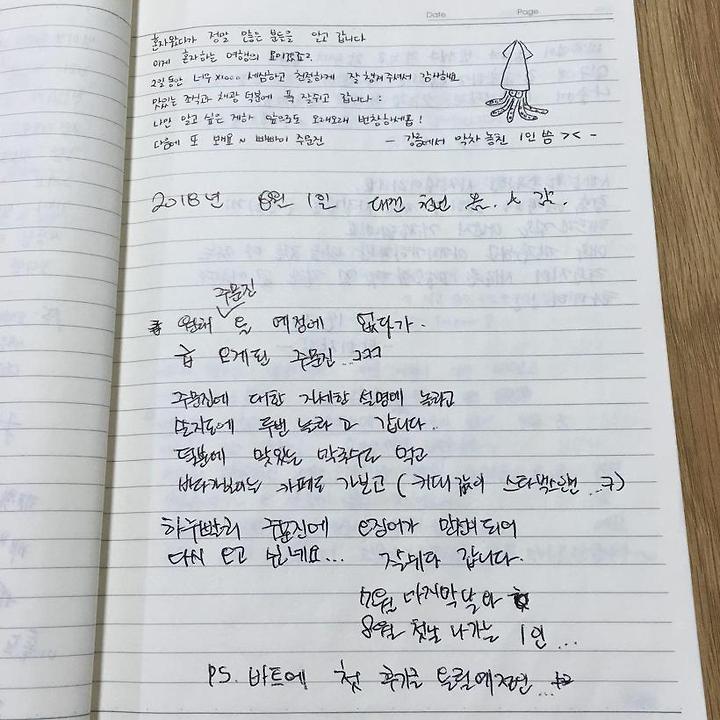 Date Page
혼자왔다가 정말 많은 분들을 안고 갑니다
이게 혼자하는 여행의 묘미겠죠?
2일동안 너무 x1000 세심하고 친절하게 잘 챙겨주셔서 감사해요
맛있는 조식과 채광 덕분에 푹 잘쉬고 갑니다 :
나만 알고 싶은 게하 앞으로도 오래오래 번창하세욥!
다음에 또 봐요 ~ 빠빠이 주문진
- 강릉에서 막차 놓친 1인 씀 >< -
2018년 8월 1일 대전 청년 옴. & 감.
주문진
원래 올 예정에 없다가.
급 오게된 주문진...ㅋㅋㅋ
주문진에 대한 자세한 설명에 놀라고
손지도에 두번 놀라고 갑니다.
덕분에 맛있는 막국수도 먹고
바다가보이는 카페도 가보고 (커피값이 스타벅스인건...ㅋ)
하루빨리 주문진에 오징어가 만선이되어
다시 오고 싶네요... 잘쉬다 갑니다.
7월 마지막날 와
8월 첫날 나가는 1인...
PS. 바트에 첫 후기글 올릴예정인...